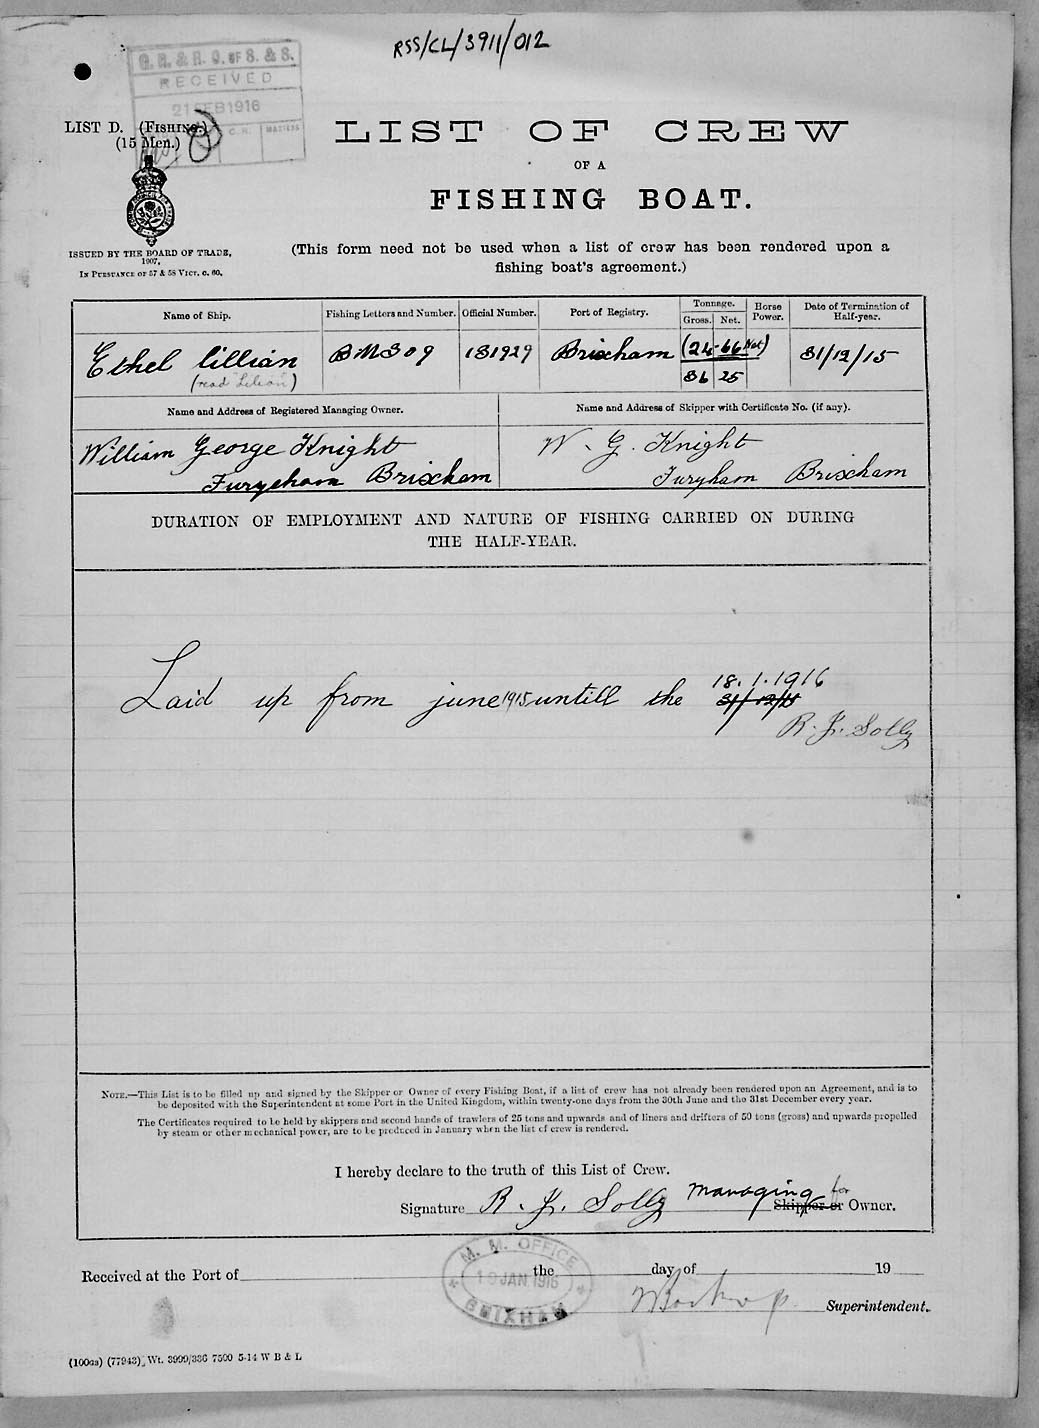 RSS/CL/3911/012
G. R. & R. O. OF S. & S.
RECEIVED
21 FEB 1916
C.R. MASTERS
LIST D. (FISHING.)
(15 Men.)
ISSUED BY THE BOARD OF TRADE,
1907,
IN PURSUANCE OF 57 & 58 VICT. C. 60.
LIST OF CREW
OF A
FISHING BOAT.
(This form need not be used when a list of crew has been rendered upon a
fishing boat's agreement.)
Name of Ship. Fishing Letters and Number. Official Number. Port of Registry. Tonnage. Gross. Net. Horse Power. Date of Termination of Half-year.
Ethel Lillian BM309 131929 Brixham (24.66 Net) 31/12/15
(read Lilian) 36 25
Name and Address of Registered Managing Owner. Name and Address of Skipper with Certificate No. (if any).
William George Knight W. G. Knight
Furzeham Brixham Furzham Brixham
DURATION OF EMPLOYMENT AND NATURE OF FISHING CARRIED ON DURING
THE HALF-YEAR.
18.1.1916
Laid up from june 1915 untill the 31/12/15
R. J. Solly
NOTE.—This List is to be filled up and signed by the Skipper or Owner of every Fishing Boat, if a list of crew has not already been rendered upon an Agreement, and is to
be deposited with the Superintendent at some Port in the United Kingdom, within twenty-one days from the 30th June and the 31st December every year.
The Certificates required to be held by skippers and second hands of trawlers of 25 tons and upwards and of liners and drifters of 50 tons (gross) and upwards propelled
by steam or other mechanical power, are to be produced in January when the list of crew is rendered.
I hereby declare to the truth of this List of Crew.
Signature R. J. Solly managing for Skipper or Owner.
Received at the Port of the day of 19
M. M. OFFICE
19 JAN. 1916
BRIXHAM
Superintendent.
(100gs) (77943) Wt. 3999/336 7500 5-14 W B & L